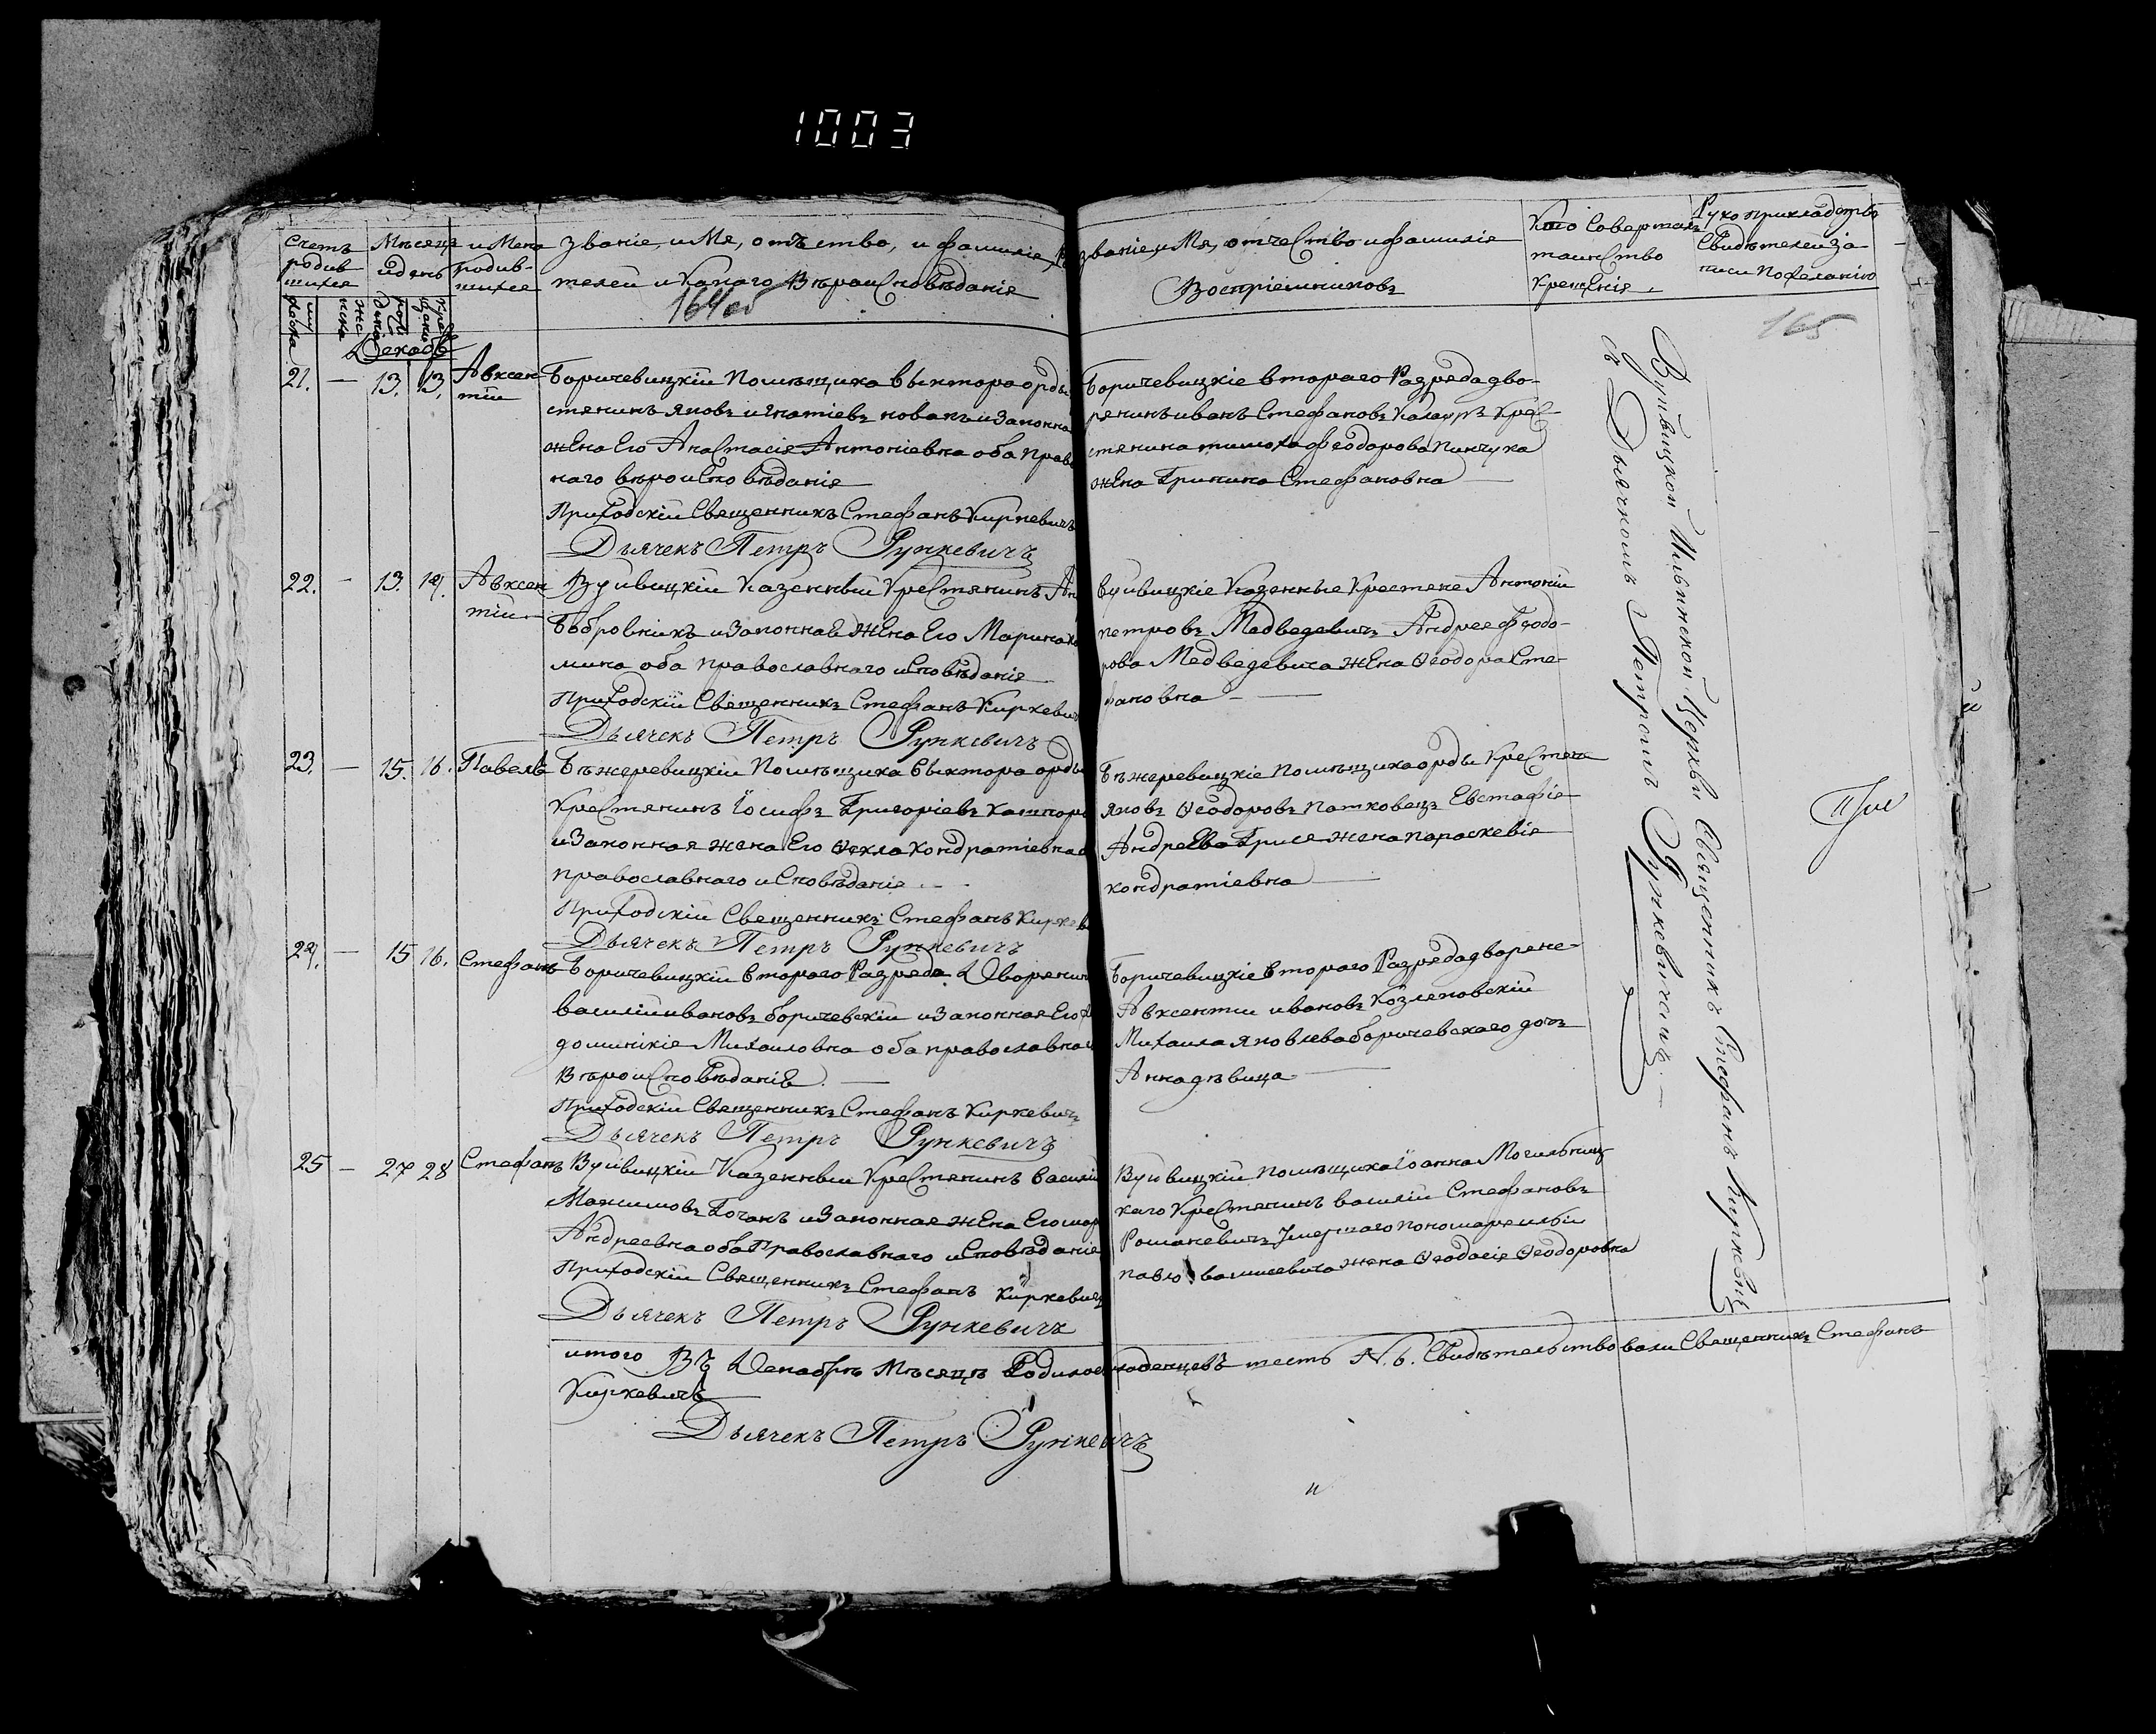 1003
Счетъ родившихся
мужеска
женска
Мѣсяцъ и день
рожденія
крещенія
имена родившихся
Званіе, имя, отчество, и фамилія, ро
телей и какаго вѣроисповѣданія
164 об
Званіе, имя, отчество и фамилія
Воспріемниковъ
Кто совершалъ
таинство
крещенія
Рукоприкладство
свидѣтелей за
писи по желанію
165
Декабрь
21. — 13. 13. Авксентій
Боричевицкій помѣщика Выктора орды
стянинъ Яковъ Игнатіевъ новакъ и законна
жена Его Анастасія Антоніевна оба прав
наго вѣроисповѣданія
Приходскій Священникъ Стефанъ Киркевичъ
Дьячекъ Петръ Рункевичъ
Боричевицкіе втораго разряда дво-
рянинъ иванъ Стефановъ крес-
стянина тимоха феодорова Пинчука
жена Стефановна
22. — 13. 14. Авксентій
Вуйвицкій казенный крестянинъ Ан
Бобровникъ и законная жена Его Марина
мина оба православнаго исповѣданія
Приходскій Священникъ Стефанъ Киркеви
Дьячекъ Петръ Рункевичъ
Вуйвицкіе казенные крестяне Антоній
петровъ Медведевичъ Андрея феодо-
рова Медведевича жена Ѳеодора Сте-
фановна —
23. — 15. 16. Павелъ
Бѣжеревицкій помѣщика Выктора орды
крестянинъ Іосифъ Григоріевъ
и законная жена Его Ѳекла кондратіевна
православнаго исповѣданія
Приходскій Священникъ Стефанъ Киркев
Дьячекъ Петръ Рункевичъ
Бѣжеревицкіе помѣщика орды крестяна
яковъ Ѳеодоровъ патковецъ Евстафія
Андреева Грися жена параскевія
кондратіевна —
24. — 15 16. Стефанъ
Боричевицкій втораго разряда Дворянин
василій ивановъ боричевскій и законная Его
доминикія Михаиловна оба православна
вѣроисповѣданія. —
Приходскій Священникъ Стефанъ Киркевичъ
Дьячекъ Петръ Рункевичъ
Боричевицкіе втораго разряда дворяне
Авксентій ивановъ козляковскій
Михаила яковлева боричевскаго дочь
Анна дѣвица —
25 — 27 28 Стефанъ
Вуйвицкій казенный крестянинъ василій
Максимовъ Гочакъ и законная жена Его мар
Андреевна оба православнаго исповѣданія
Приходскій Священникъ Стефанъ Киркевичъ
Дьячекъ Петръ Рункевичъ
Вуйвицкій помѣщика Іоанна Могильниц-
каго крестянинъ василій Стефановъ
Романевичъ умершаго пономаря
павло жена Ѳеодосія Ѳеодоровна
Вуйвицкой Церкви Священникъ Стефанъ Киркевичъ
съ Дьячкомъ Петромъ Рункевичемъ. —
итого Въ Декабрѣ Мѣсяцѣ родилос младенцевъ шесть N. 6. Свидѣтельствовали Священникъ Стефанъ
Киркевичъ
Дьячекъ Петръ Рункевичъ